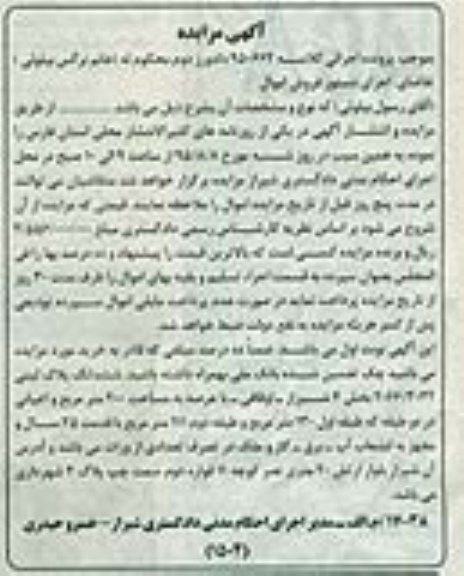 آگهی مزایده
بموجب پرونده اجرائی کلاسه ۹۵۰۶۷۲ دادورز دوم محکوم له خانم نرگس
تقاضای اجرای دستور فروش اموال
آقای رسول که نوع و مشخصات آن بشرح ذیل می باشد از طریق
مزایده و انتشار آگهی در یکی از روزنامه های کثیرالانتشار محلی استان فارس را
نموده به همین سبب در روز شنبه مورخ ۹۵/۸/۸ از ساعت ۹ الی ۱۰ صبح در محل
اجرای احکام مدنی دادگستری شیراز مزایده برگزار خواهد شد متقاضیان می توانند
در مدت پنج روز قبل از تاریخ مزایده اموال را ملاحظه نمایند قیمتی که مزایده از آن
شروع می شود بر اساس نظریه کارشناس رسمی دادگستری مبلغ
ریال و برنده مزایده کسی است که بالاترین قیمت را پیشنهاد و ده درصد بها را فی
المجلس بعنوان سپرده به قسمت اجراء تسلیم و بقیه بهای اموال را ظرف مدت ۳۰ روز
از تاریخ مزایده پرداخت نماید در صورت عدم پرداخت مابقی اموال سپرده تودیعی
پس از کسر هزینه مزایده به نفع دولت ضبط خواهد شد.
این آگهی نوبت اول می باشد. ضمناً ده درصد مبلغی که قادر به خرید مورد مزایده
می باشید چک تضمین شده بانک ملی بهمراه داشته باشید. ششدانگ پلاک ثبتی
بخش ۴ شیراز - اوقافی - با عرصه به مساحت ۲۰۰ متر مربع و اعیانی
در دو طبقه که طبقه اول ۱۳۰ متر مربع و طبقه دوم متر مربع با قدمت ۲۵ سال و
مجهز به انشعاب آب - برق - گاز و ملک در تصرف تعدادی از وراث می باشد و آدرس
آن شیراز بلوار ارتش ۲۰ متری نصر کوچه ۶ فواره دوم سمت چپ پلاک ۴ شهرداری
می باشد.
۱۴۰۳۸/م الف - مدیر اجرای احکام مدنی دادگستری شیراز - خسرو حیدری
(۱۵۰۴)